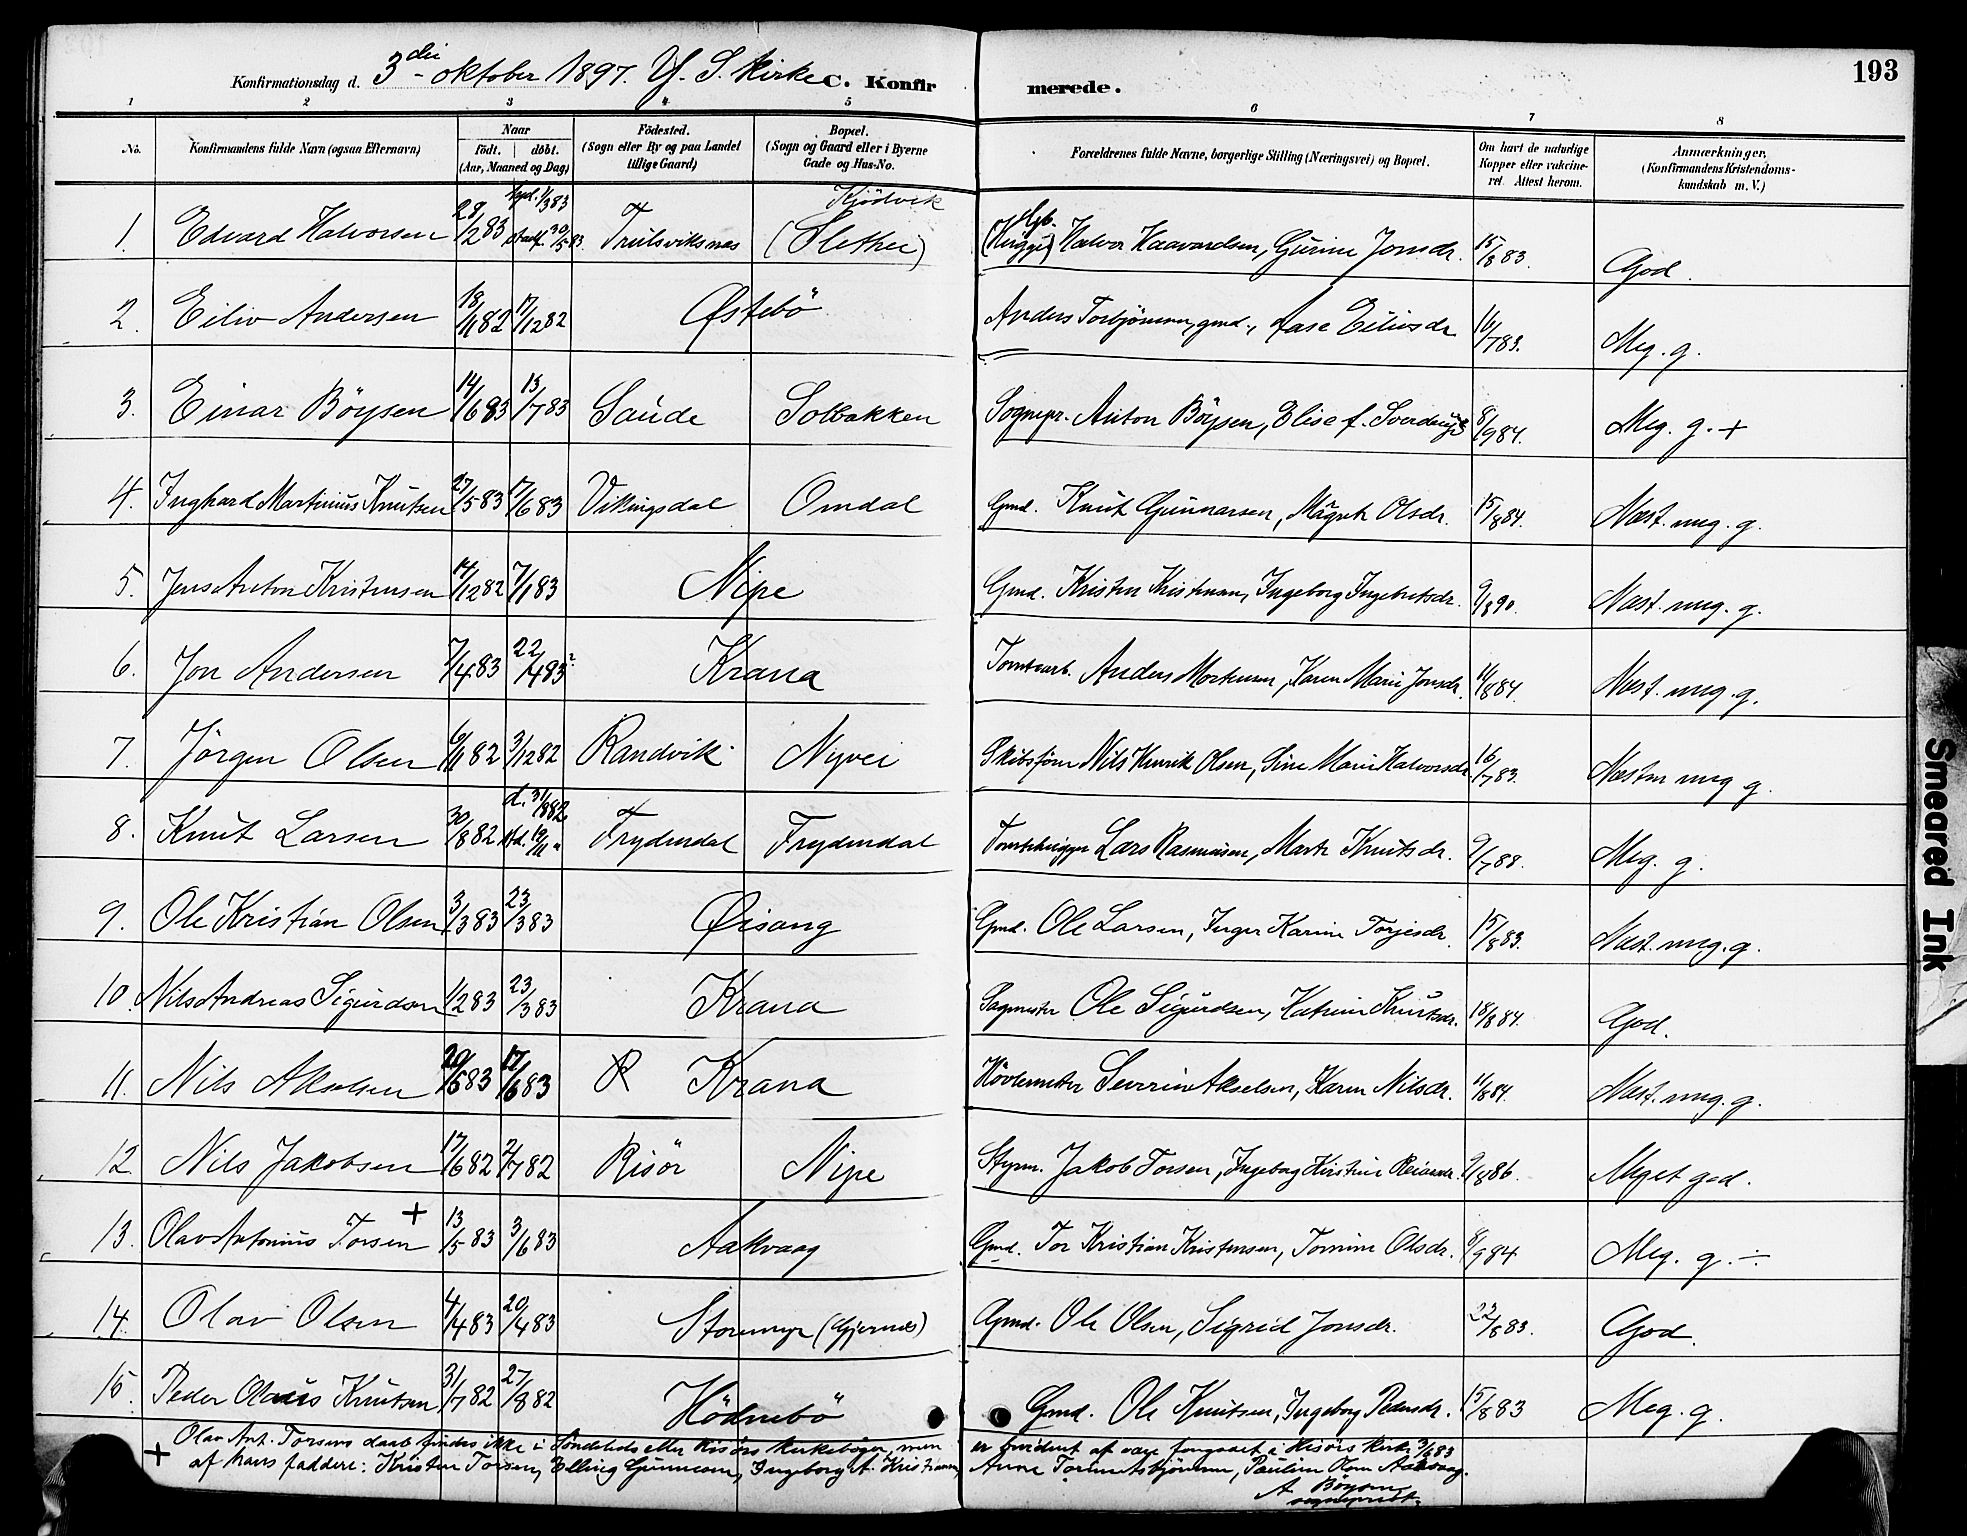 193
Konfirmationsdag d. 3die oktober 1897. Y. S. kirke C. Konfirmerede.
1 2 3 4 5 6 7 8
No. Konfirmandens fulde Navn (ogsaa Efternavn) Naar födt. döbt. (Aar, Maaned og Dag) Födested. (Sogn eller By og paa Landet tillige Gaard) Bopæl. (Sogn og Gaard eller i Byerne Gade og Hus-No. Forældrenes fulde Navne, borgerlige Stilling (Næringsvei) og Bopæl. Om havt de naturlige Kopper eller vakcineret. Attest herom. Anmærkninger, (Konfirmandens Kristendomskundskab m. V.)
1. Edvard Halvorsen 28/2 83 hjd. 1/3 83 stadf. 30/5 83. Trulsviksnæs Kjödvik (Slethei) Halvor Haavardsen, Gurine Jonsdr. 15/8 83. God.
2. Eiliv Andersen 18/11 82 17/12 82 Østebö Anders Torbjörnsen, gmd., Aase Eilivsdr. 16/7 83. Meg. g.
3. Einar Böysen 14/6 83 15/7 83 Saude Solbakken Sognepr. Anton Böysen, Elise f. Sverdrup 8/9 84. Meg. g. +
4. Inghard Martinius Knutsen 27/5 83 17/6 83 Vikingsdal Omdal Gmd. Knut Gunnarsen, Margrete Olsdr. 15/8 84. Næst. meg. g.
5. Jens Anton Kristensen 14/12 82 7/1 83 Nipe Gmd. Kristen Kristensen, Ingeborg Ingebretsdr. 9/8 90. Næst. meg. g.
6. Jon Andersen 7/4 83 22/4 83 Krana Tomtearb. Anders Mortensen, Karen Marie Jonsdr. 11/8 84. Næst. meg. g.
7. Jörgen Olsen 6/11 82 3/12 82 Randvik Nyvei Skibsförer Nils Henrik Olsen, Sine Marie Halvorsdr. 16/7 83. Næsten meg g.
8. Knut Larsen 30/8 82 d. 31/8 82 std. 19/11 " Frydendal Frydendal Lars Rasmusen, Marte Knutsdr. 9/7 88. Meg. g.
9. Ole Kristian Olsen 3/3 83 23/3 83 Øisang Gmd. Ole Larsen, Inger Karine Torjesdr. 15/8 83. Næst. meg. g.
10. Nils Andreas Sigurdsen 1/2 83 23/3 83 Krana Sagmester Ole Sigurdsen, Katrine Knutsdr. 18/8 84. God.
11. Nils Akselsen 20/5 83 17/6 83 R Krana Hövlemester Severin Akselsen, Karen Nilsdr. 11/8 84. Næst. meg. g.
12. Nils Jakobsen 17/6 82 2/7 82 Risör Nipe Styrm. Jakob Torsen, Ingeborg Kirstine Reiersdr. 9/8 86. Meget god.
13. Olav Antonius Torsen + 13/5 83 3/6 83 Aakvaag Gmd. Tor Kristian Kristensen, Tomine Olsdr. 8/9 84 Meg. g. ÷
14. Olav Olsen 4/4 83 20/4 83 Stormyr (Gjernes) Gmd. Ole Olsen, Sigrid Jonsdr. 22/8 83. God.
15. Peder Olaus Knutsen 31/7 82 27/8 82 Hödnebö Gmd. Ole Knutsen, Ingeborg Pedersdr. 15/8 83 Meg. g.
+ Olav Ant. Torsens daab findes ikke i Söndeleds eller Risörs kirkebøger, men er bevidnet at være foregaaet i Risörs kirke 3/6 83
af hans faddere: Kristen Torsen, Elling Gunnersen, Ingeborg A. Kristensen, Anne Tormodsbjönnen, Pauline Olsen Aakvaag.
A Böysen
sogneprest.
Smeared Ink